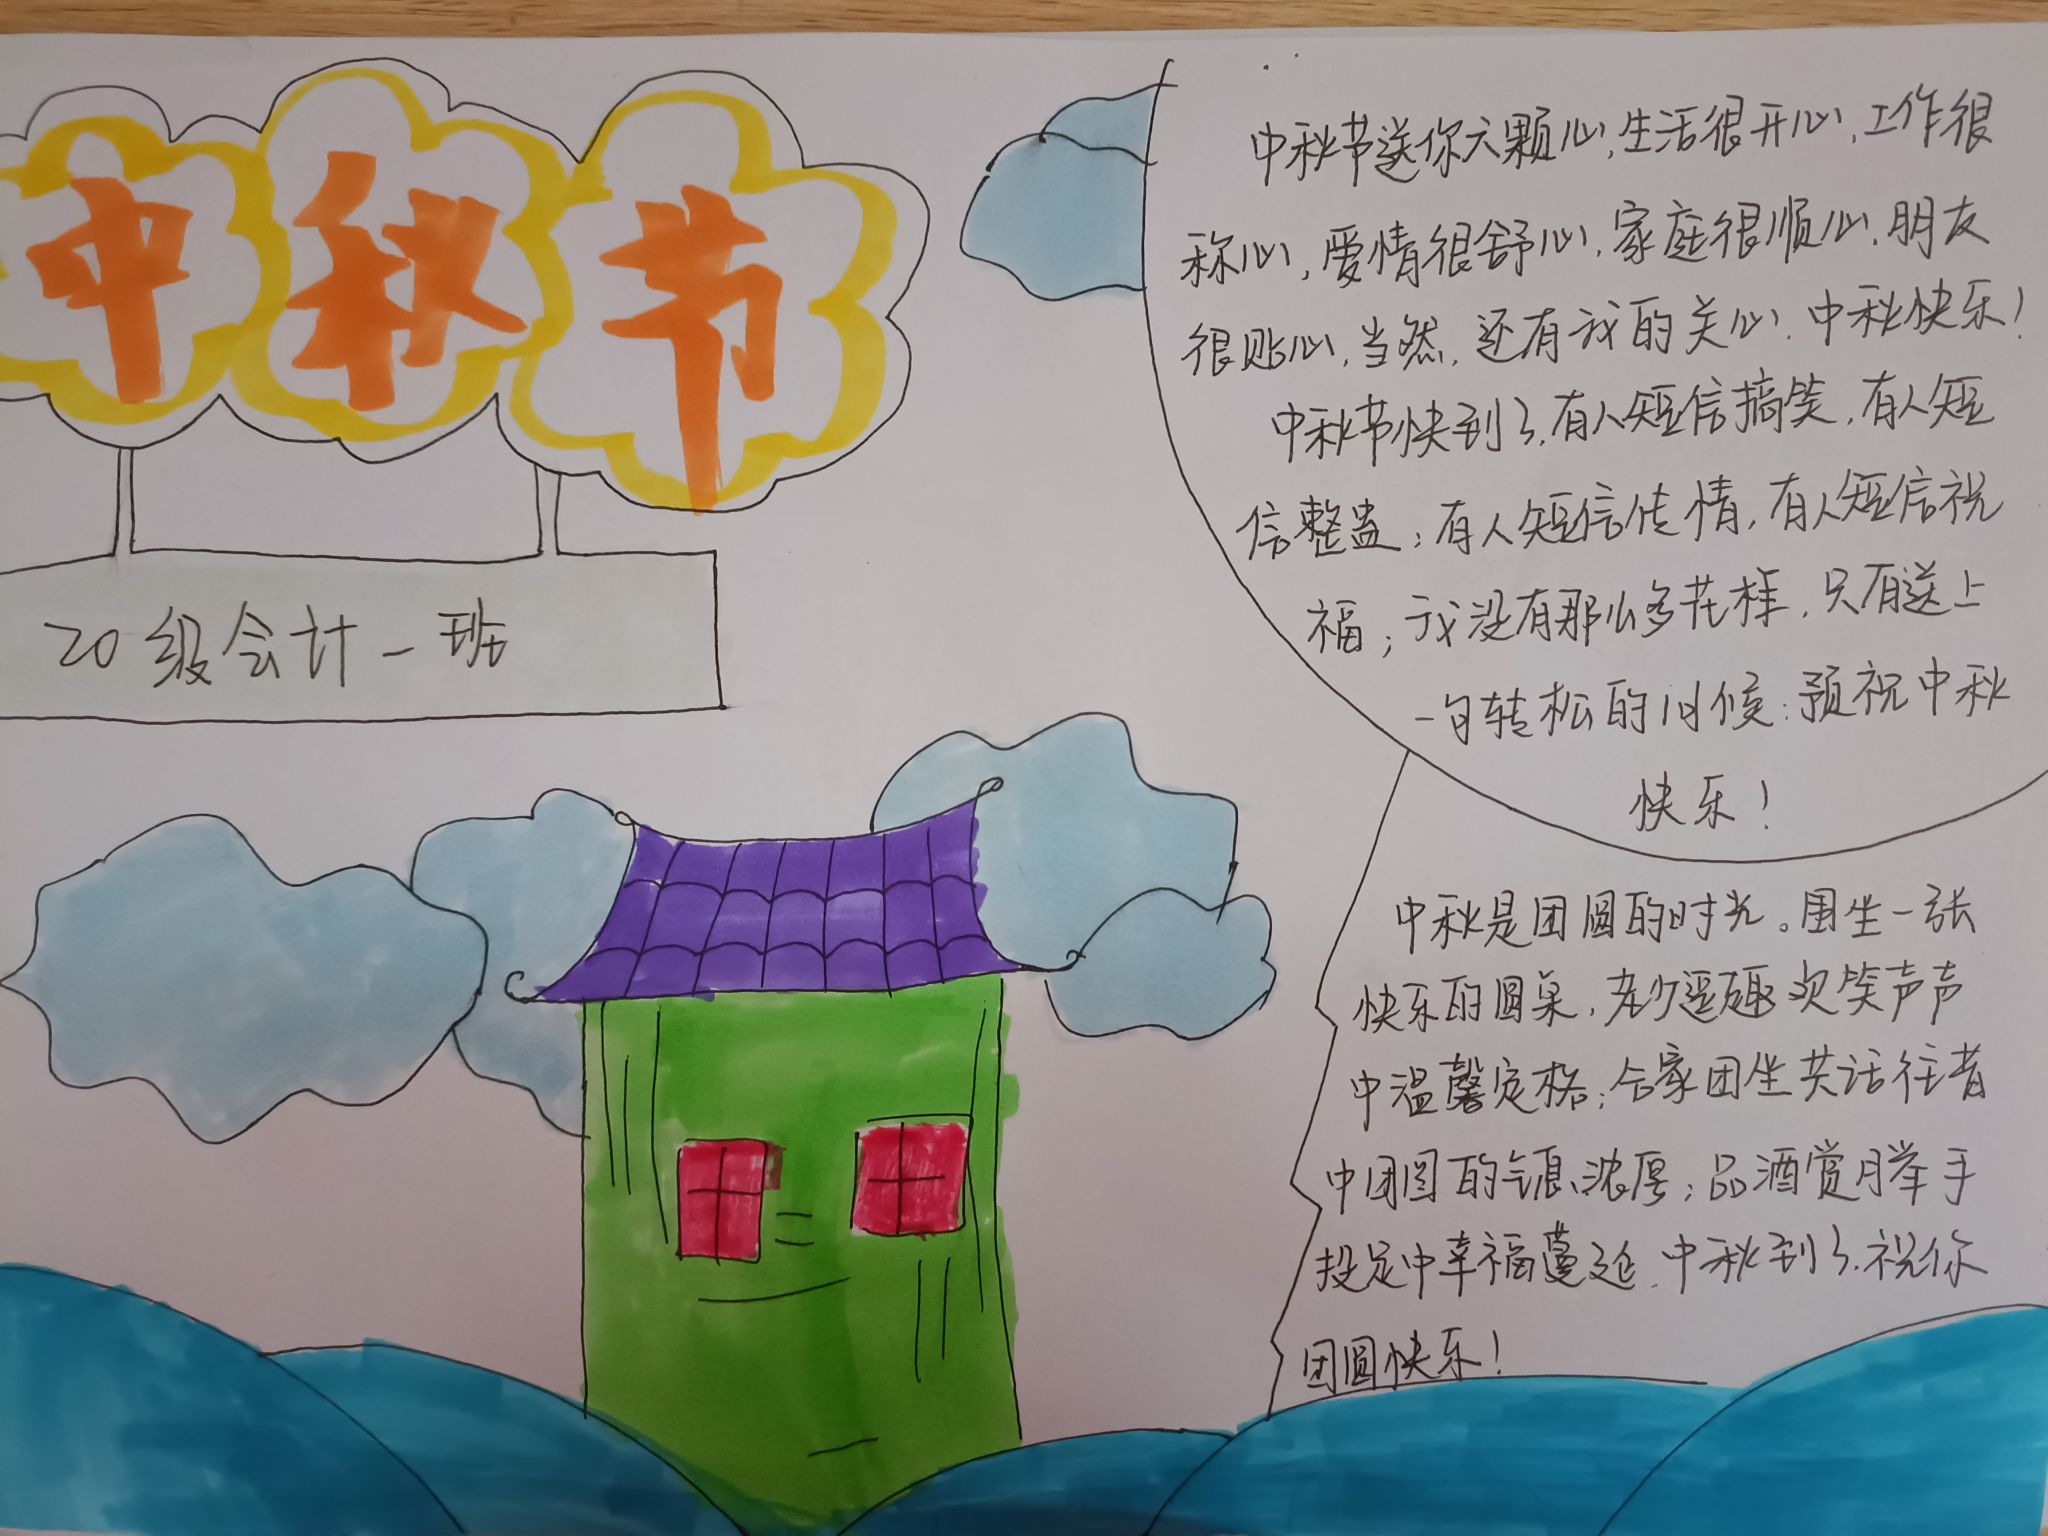 中秋节
20级会计一班
中秋节送你六颗心,生活很开心,工作很
称心,爱情很舒心,家庭很顺心,朋友
很贴心,当然,还有我的关心.中秋快乐!
中秋节快到了,有人短信搞笑,有人短
信整蛊;有人短信传情,有人短信祝
福;我没有那么多花样,只有送上
一句转松的问候:预祝中秋
快乐!
中秋是团圆的时光。围坐一张
快乐的圆桌,老少逗趣欢笑声声
中温馨定格;合家团坐共话往昔
中团圆的气息浓厚;品酒赏月举手
投足中幸福蔓延.中秋到了,祝你
团圆快乐!